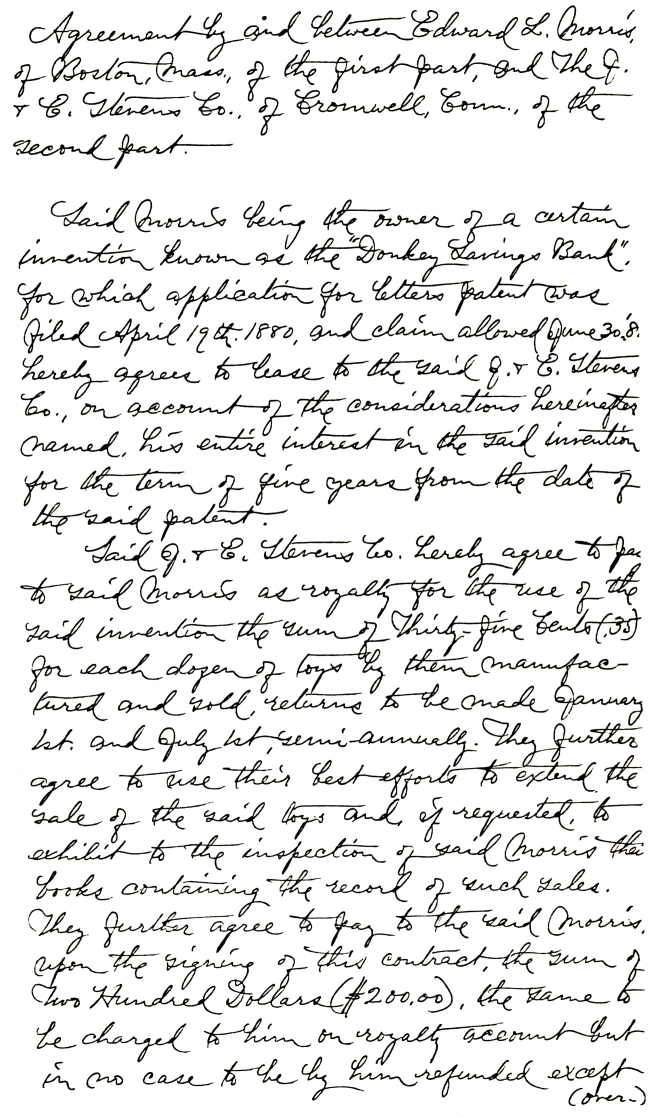 Agreement by and between Edward L. Morris,
of Boston, Mass., of the first part, and The J.
& E. Stevens Co., of Cromwell, Conn., of the
second part.
Said Morris being the owner of a certain
invention known as the "Donkey Savings Bank",
for which application for letters patent was
filed April 19th. 1880, and claim allowed June 30, '8
hereby agrees to lease to the said J. & E. Stevens
Co., on account of the considerations hereinafter
named, his entire interest in the said invention
for the term of five years from the date of
the said patent.
Said J. & E. Stevens Co. hereby agree to pay
to said Morris as royalty for the use of the
said invention the sum of Thirty-five Cents (.35)
for each dozen of toys by them manufac-
tured and sold, returns to be made January
1st. and July 1st, semi-annually. They further
agree to use their best efforts to extend the
sale of the said toys and, if requested, to
exhibit to the inspection of said Morris thei
books containing the record of such sales.
They further agree to pay to the said Morris,
upon the signing of this contract, the sum of
Two Hundred Dollars ($200.00), the same to
be charged to him on royalty account but
in no case to be by him refunded except
(over-)